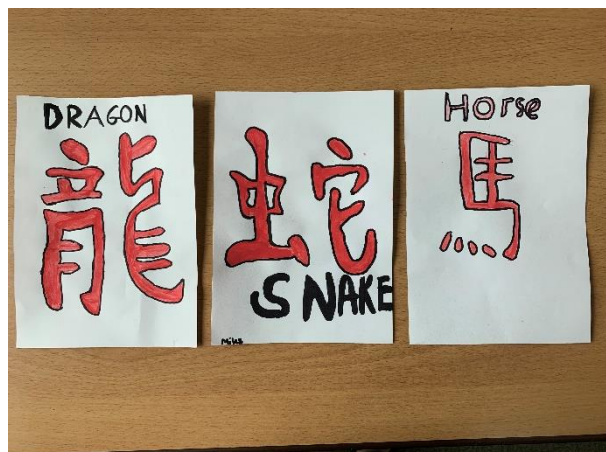 DRAGON
龍
蛇
SNAKE
Miks
Horse
馬